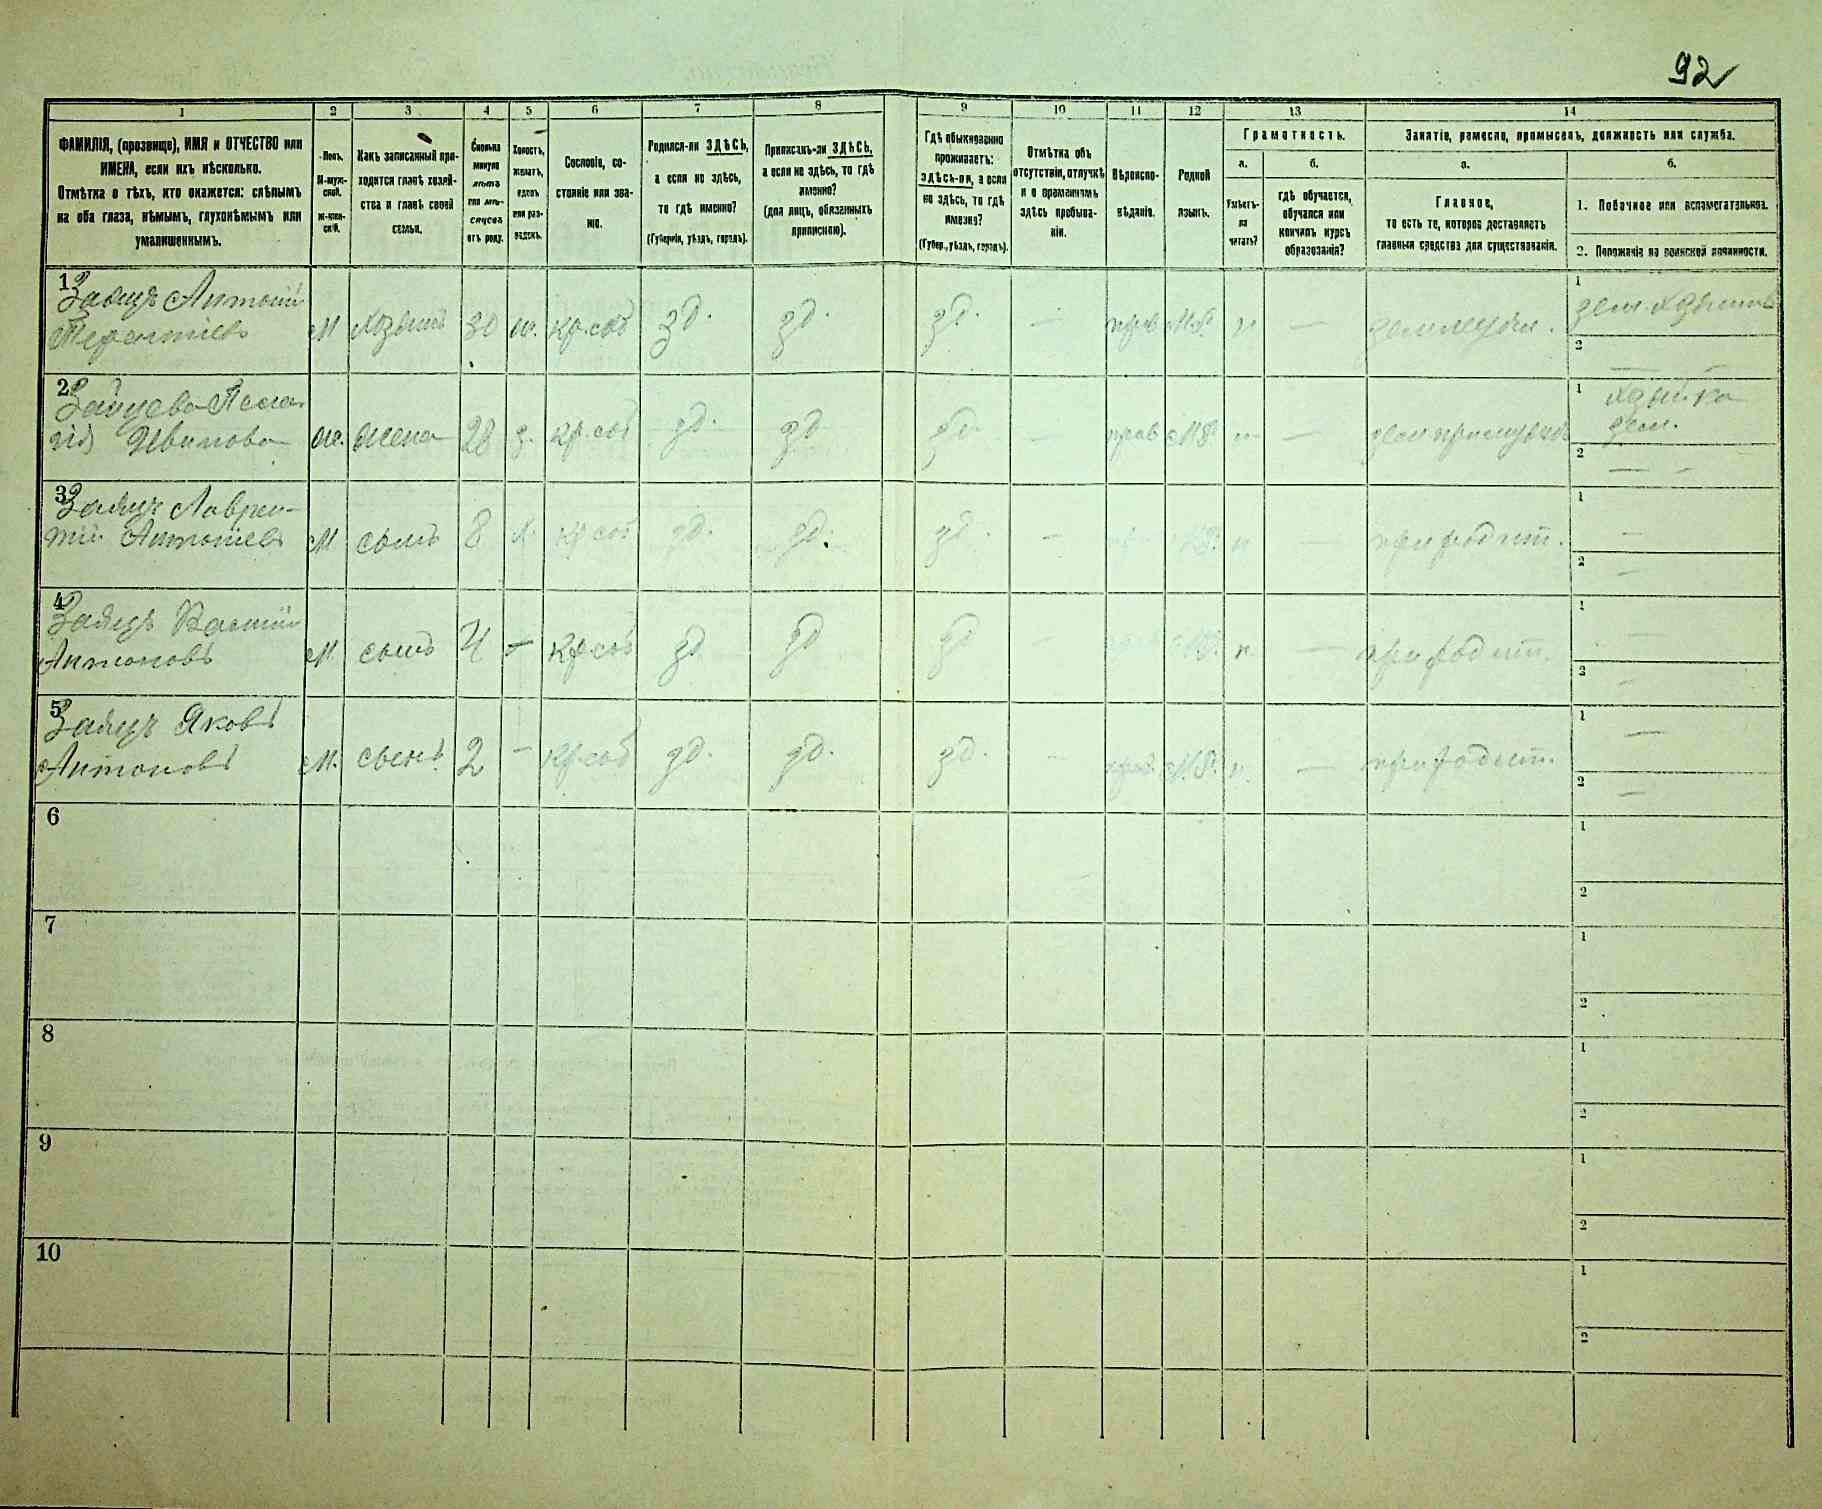 92
1 2 3 4 5 6 7 8 9 10 11 12 13 14
ФАМИЛІЯ, (прозвище), ИМЯ и ОТЧЕСТВО или
ИМЕНА, если ихъ нѣсколько.
Отмѣтка о тѣхъ, кто окажется: слѣпымъ
на оба глаза, нѣмымъ, глухонѣмымъ или
умалишеннымъ.
Полъ.
М-муж-
ской.
Ж-жен-
скій.
Какъ записанный при-
ходится главѣ хозяй-
ства и главѣ своей
семьи.
Сколько
минуло
лѣтъ
или мѣ-
сяцевъ
отъ роду.
Холостъ,
женатъ,
вдовъ
или раз-
веденъ.
Сословіе, со-
стояніе или зва-
ніе.
Родился-ли ЗДѢСЬ,
а если не здѣсь,
то гдѣ именно?
(Губернія, уѣздъ, городъ).
Приписанъ-ли ЗДѢСЬ,
а если не здѣсь, то гдѣ
именно?
(для лицъ, обязанныхъ
припискою).
Гдѣ обыкновенно
проживаетъ:
ЗДѢСЬ-ли, а если
не здѣсь, то гдѣ
именно?
(Губер., уѣздъ, городъ).
Отмѣтка объ
отсутствіи, отлучкѣ
и о временномъ
здѣсь пребыва-
ніи.
Вѣроиспо-
вѣданіе.
Родной
языкъ.
Грамотность.
а. б.
Умѣетъ-
ли
читать?
гдѣ обучается,
обучался или
кончилъ курсъ
образованія?
Занятіе, ремесло, промыселъ, должность или служба.
а. б.
Главное,
то есть то, которое доставляетъ
главныя средства для существованія.
1. Побочное или вспомогательное.
2. Положеніе по воинской повинности.
1 Заяцъ Антоній
Терентіевъ
М 30 ж. кр. соб зд. зд. зд. — прав М.Р. н — земледѣл.
1
2
2 Зайцева
Иванова
ж. жена 28 з. кр. соб зд. зд зд — прав М.Р. н —
1
2
3 Заяцъ Лаврен-
тій Антоніевъ
М сынъ 8 х. кр соб зд. зд. зд. — М.Р. н — при родит.
1 —
2 —
4 Заяцъ
Антоновъ
М. сынъ 4 — кр соб зд зд зд — М.Р. н. — при родит.
1 —
2 —
5 Заяцъ Яковъ
Антоновъ
М. сынъ 2 — кр соб зд. зд. зд. — прав. М.Р. н. — при родит.
1 —
2 —
6
1
2
7
1
2
8
1
2
9
1
2
10
1
2